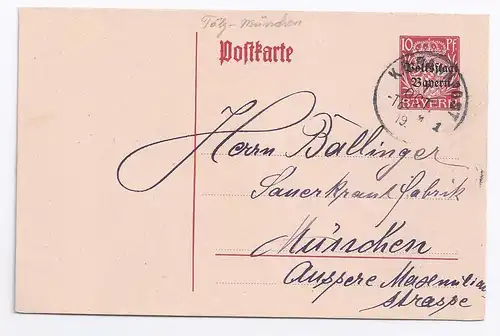 Tölz - München
Postkarte
10 Pf
Volksstaat
Bayern
BAYERN
1
Herrn Ballinger
Sauerkraut fabrik
München
Äuspere Maxmilian
straspe